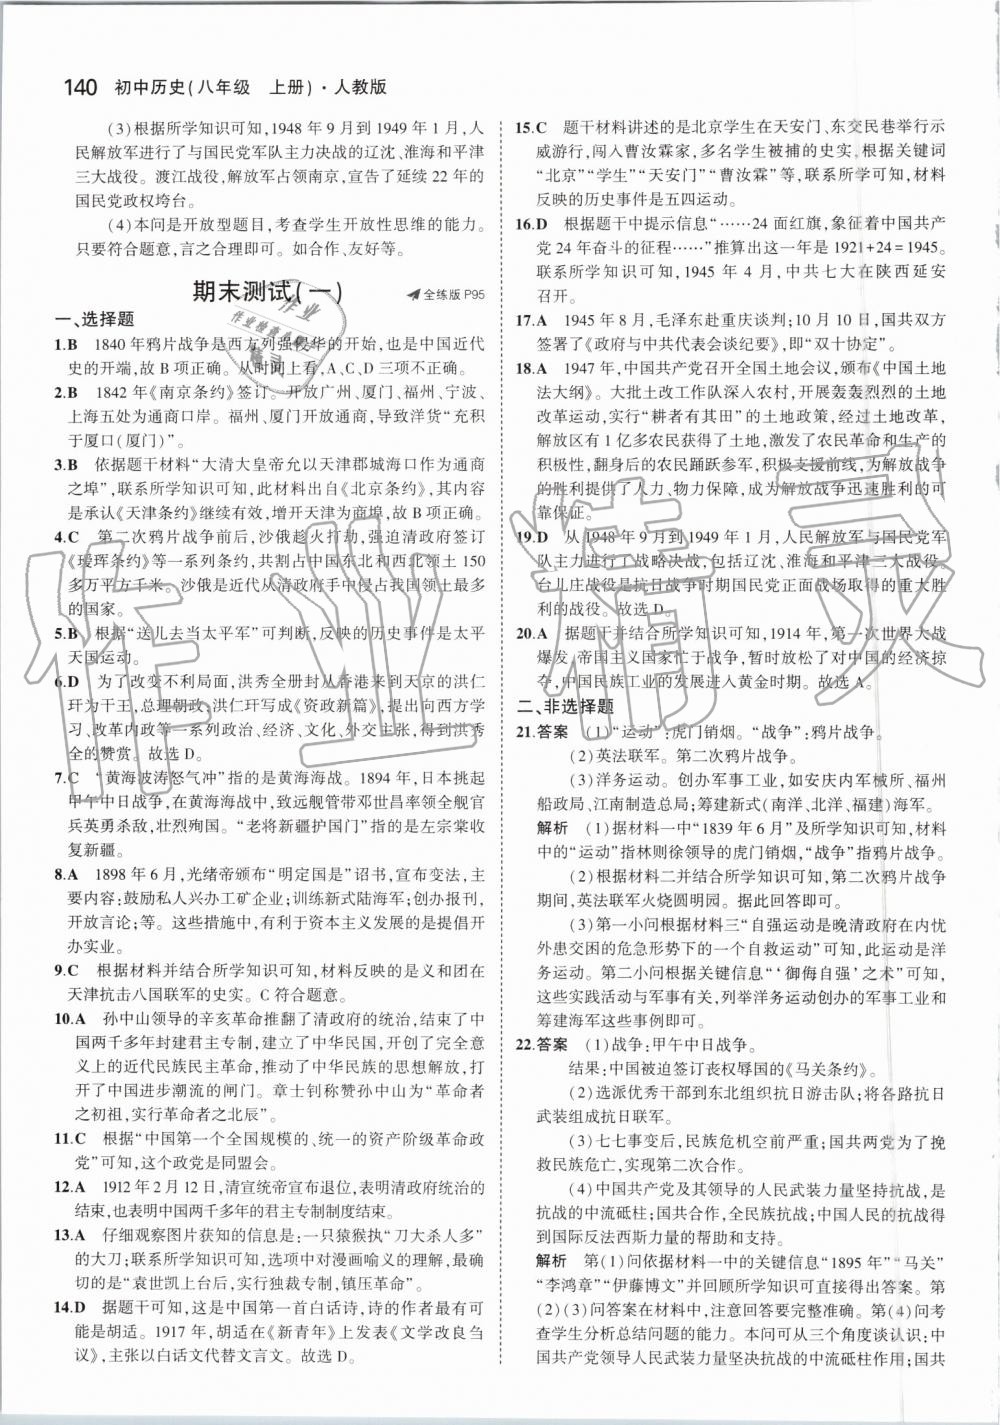 140 初中历史(八年级 上册)·人教版
(3)根据所学知识可知,1948 年 9 月到 1949 年 1 月,人
民解放军进行了与国民党军队主力决战的辽沈、淮海和平津
三大战役。渡江战役,解放军占领南京,宣告了延续 22 年的
国民党政权垮台。
(4)本问是开放型题目,考查学生开放性思维的能力。
只要符合题意,言之合理即可。如合作、友好等。
期末测试(一) 全练版 P95
一、选择题
1.B 1840 年鸦片战争是西方列强侵华的开始,也是中国近代
史的开端,故 B 项正确。从时间上看,A、C、D 三项不正确。
2.B 1842 年《南京条约》签订。开放广州、厦门、福州、宁波、
上海五处为通商口岸。福州、厦门开放通商,导致洋货“充积
于厦口(厦门)”。
3.B 依据题干材料“大清大皇帝允以天津郡城海口作为通商
之埠”,联系所学知识可知,此材料出自《北京条约》,其内容
是承认《天津条约》继续有效,增开天津为商埠,故选 B。
4.C 第二次鸦片战争前后,沙俄趁火打劫,强迫清政府签订
《瑷珲条约》等一系列条约,共割占中国东北和西北领土 150
多万平方千米。沙俄是近代从清政府手中侵占我国领土最多
的国家。
5.B 根据“送儿去当太平军”可判断,反映的历史事件是太平
天国运动。
6.D 为了改变不利局面,洪秀全册封从香港来到天京的洪仁
玕为干王,总理朝政,洪仁玕写成《资政新篇》,提出向西方学
习、改革内政等一系列政治、经济、文化、外交主张,得到洪秀
全的赞赏。故选 D。
7.C “黄海波涛怒气冲”指的是黄海海战。1894 年,日本挑起
甲午中日战争,在黄海海战中,致远舰管带邓世昌率领全舰官
兵英勇杀敌,壮烈殉国。“老将新疆护国门”指的是左宗棠收
复新疆。
8.A 1898 年 6 月,光绪帝颁布“明定国是”诏书,宣布变法,主
要内容:鼓励私人兴办工矿企业;训练新式陆海军;创办报刊,
开放言论;等。这些措施中,有利于资本主义发展的是提倡开
办实业。
9.C 根据材料并结合所学知识可知,材料反映的是义和团在
天津抗击八国联军的史实。C 符合题意。
10.A 孙中山领导的辛亥革命推翻了清政府的统治,结束了中
国两千多年封建君主专制,建立了中华民国,开创了完全意义
上的近代民族民主革命,推动了中华民族的思想解放,打开
了中国进步潮流的闸门。章士钊称赞孙中山为“革命者
之初祖,实行革命者之北辰”。
11.C 根据“中国第一个全国规模的、统一的资产阶级革命政
党”可知,这个政党是同盟会。
12.A 1912 年 2 月 12 日,清宣统帝宣布退位,表明清政府统治的
结束,也表明中国两千多年来的君主专制制度结束。
13.A 仔细观察图片获知的信息是:一只猿猴执“刀大杀人多”
的大刀;联系所学知识可知,选项中对漫画喻义的理解,最确
切的是“袁世凯上台后,实行独裁专制,镇压革命”。
14.D 据题干可知,这是中国第一首白话诗,诗的作者最有可
能是胡适。1917 年,胡适在《新青年》上发表《文学改良刍
议》,主张以白话文代替文言文。故选 D。
15.C 题干材料讲述的是北京学生在天安门、东交民巷举行示
威游行,闯入曹汝霖家,多名学生被捕的史实,根据关键词
“北京”“学生”“天安门”“曹汝霖”等,联系所学可知,材料
反映的历史事件是五四运动。
16.D 根据题干中提示信息“……24 面红旗,象征着中国共产
党 24 年奋斗的征程……”推算出这一年是 1921+24=1945。
联系所学知识可知,1945 年 4 月,中共七大在陕西延安
召开。
17.A 1945 年 8 月,毛泽东赴重庆谈判;10 月 10 日,国共双方
签署了《政府与中共代表会谈纪要》,即“双十协定”。
18.A 1947 年,中国共产党召开全国土地会议,颁布《中国土地
法大纲》。大批土改工作队深入农村,开展轰轰烈烈的土地
改革运动,实行“耕者有其田”的土地政策,经过土地改革,
解放区有 1 亿多农民获得了土地,激发了农民革命和生产的
积极性,翻身后的农民踊跃参军,积极支援前线,为解放战争
的胜利提供了人力、物力保障,成为解放战争迅速胜利的可
靠保证。
19.D 从 1948 年 9 月到 1949 年 1 月,人民解放军与国民党军
队主力进行了战略决战,包括辽沈、淮海和平津三大战役。
台儿庄战役是抗日战争时期国民党正面战场取得的重大胜
利的战役。故选 D。
20.A 据题干并结合所学知识可知,1914 年,第一次世界大战
爆发,帝国主义国家忙于战争,暂时放松了对中国的经济掠
夺,中国民族工业的发展进入黄金时期。故选 A。
二、非选择题
21.答案 (1)“运动”:虎门销烟。“战争”:鸦片战争。
(2)英法联军。第二次鸦片战争。
(3)洋务运动。创办军事工业,如安庆内军械所、福州
船政局、江南制造总局;筹建新式(南洋、北洋、福建)海军。
解析 (1)据材料一中“1839 年 6 月”及所学知识可知,材料
中的“运动”指林则徐领导的虎门销烟,“战争”指鸦片战争。
(2)根据材料二并结合所学知识可知,第二次鸦片战争
期间,英法联军火烧圆明园。据此回答即可。
(3)第一小问根据材料三“自强运动是晚清政府在内忧
外患交困的危急形势下的一个自救运动”可知,此运动是洋
务运动。第二小问根据关键信息“‘御侮自强’之术”可知,
这些实践活动与军事有关,列举洋务运动创办的军事工业和
筹建海军这些事例即可。
22.答案 (1)战争:甲午中日战争。
结果:中国被迫签订丧权辱国的《马关条约》。
(2)选派优秀干部到东北组织抗日游击队;将各路抗日
武装组成抗日联军。
(3)七七事变后,民族危机空前严重;国共两党为了挽
救民族危亡,实现第二次合作。
(4)中国共产党及其领导的人民武装力量坚持抗战,是
抗战的中流砥柱;国共合作,全民族抗战;中国人民的抗战得
到国际反法西斯力量的帮助和支持。
解析 第(1)问依据材料一中的关键信息“1895 年”“马关”
“李鸿章”“伊藤博文”并回顾所学知识可直接得出答案。第
(2)(3)问答案在材料中,注意回答要完整准确。第(4)问考
查学生分析总结问题的能力。本问可从三个角度谈认识:中
国共产党领导人民武装力量坚决抗战的中流砥柱作用;国共
作业精灵